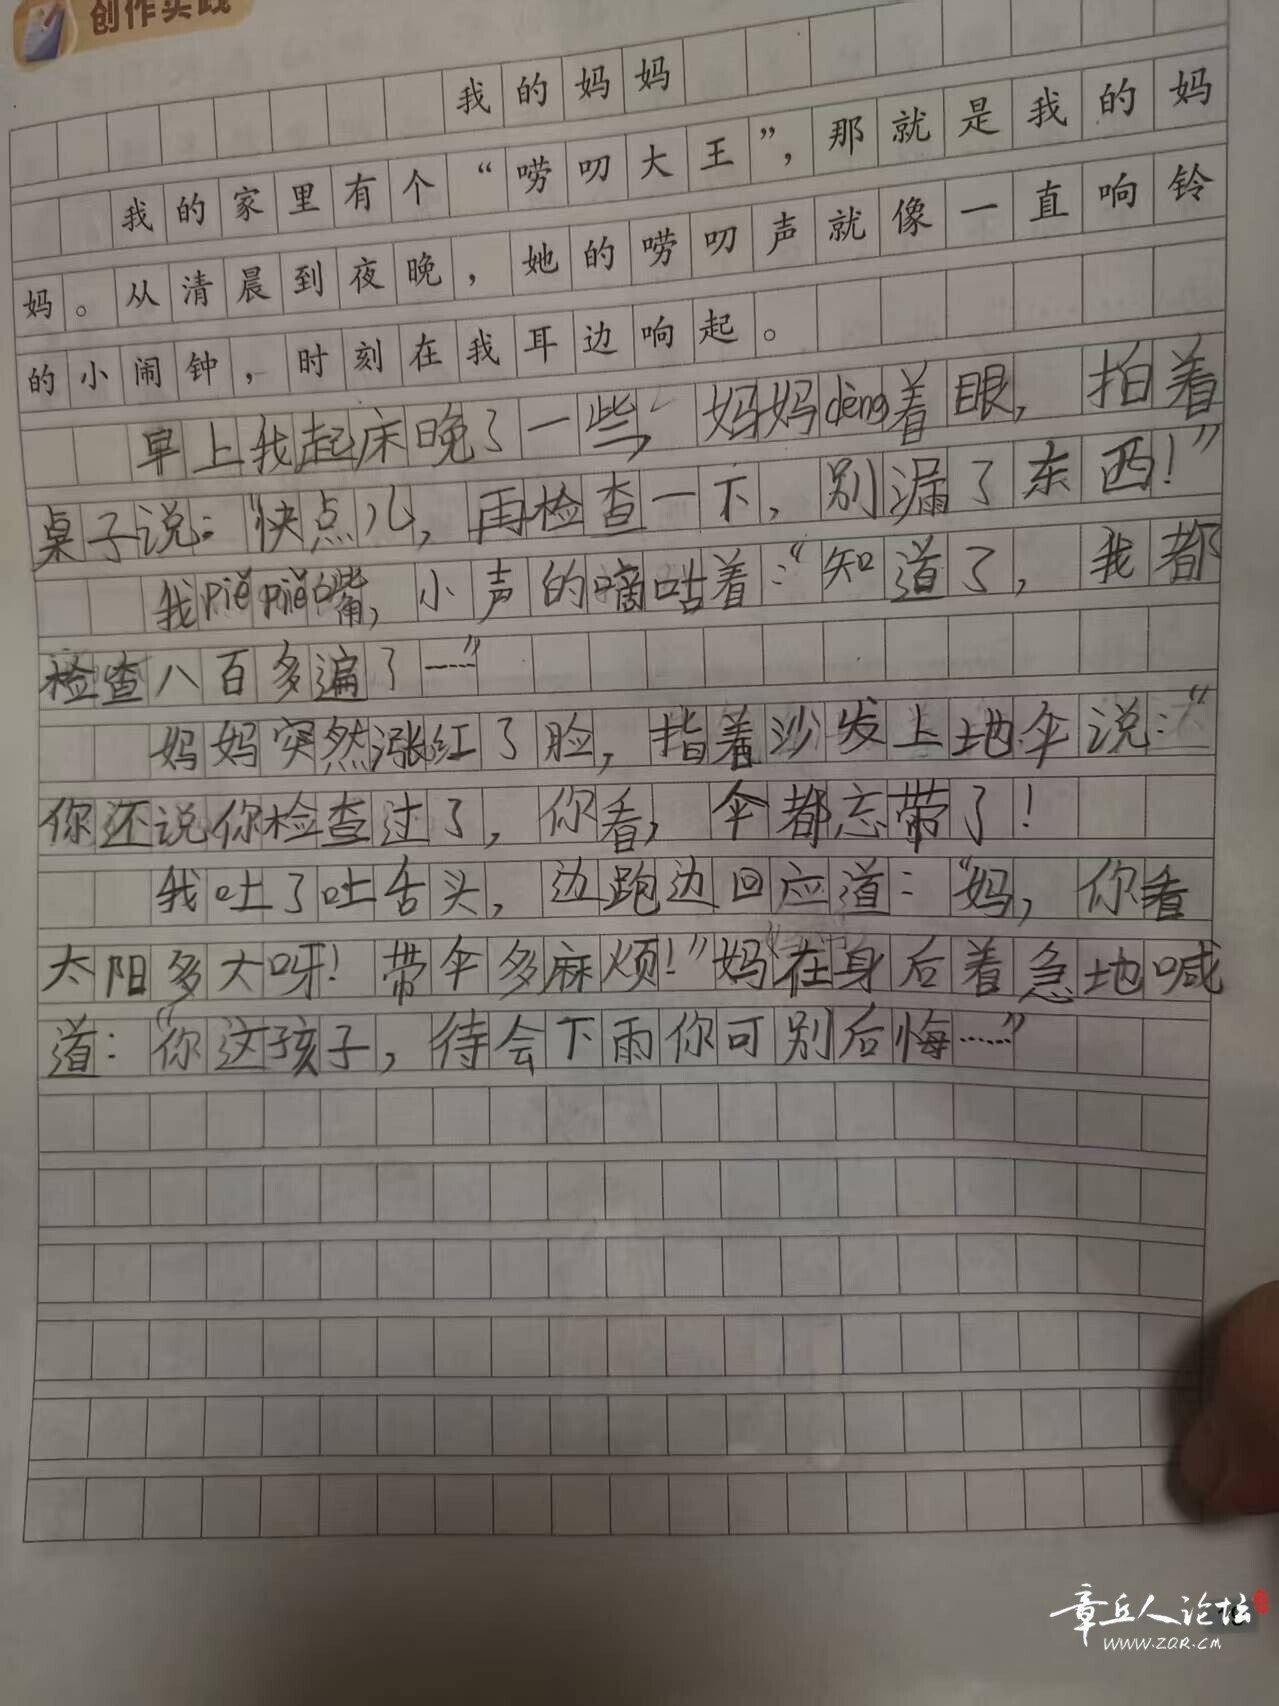 创作实践
我的妈妈
我的家里有个“唠叨大王”，那就是我的妈
妈。从清晨到夜晚，她的唠叨声就像一直响铃
的小闹钟，时刻在我耳边响起。
早上我起床晚了一些，妈妈dèng着眼，拍着
桌子说：“快点儿，再检查一下，别漏了东西！”
我piě piě嘴，小声的嘀咕着：“知道了，我都
检查八百多遍了……”
妈妈突然涨红了脸，指着沙发上地伞说：“
你还说你检查过了，你看，伞都忘带了！
我吐了吐舌头，边跑边回应道：“妈，你看
太阳多大呀！带伞多麻烦！”妈在身后着急地喊
道：“你这孩子，待会下雨你可别后悔……”
章丘人论坛
www.ZQR.CM